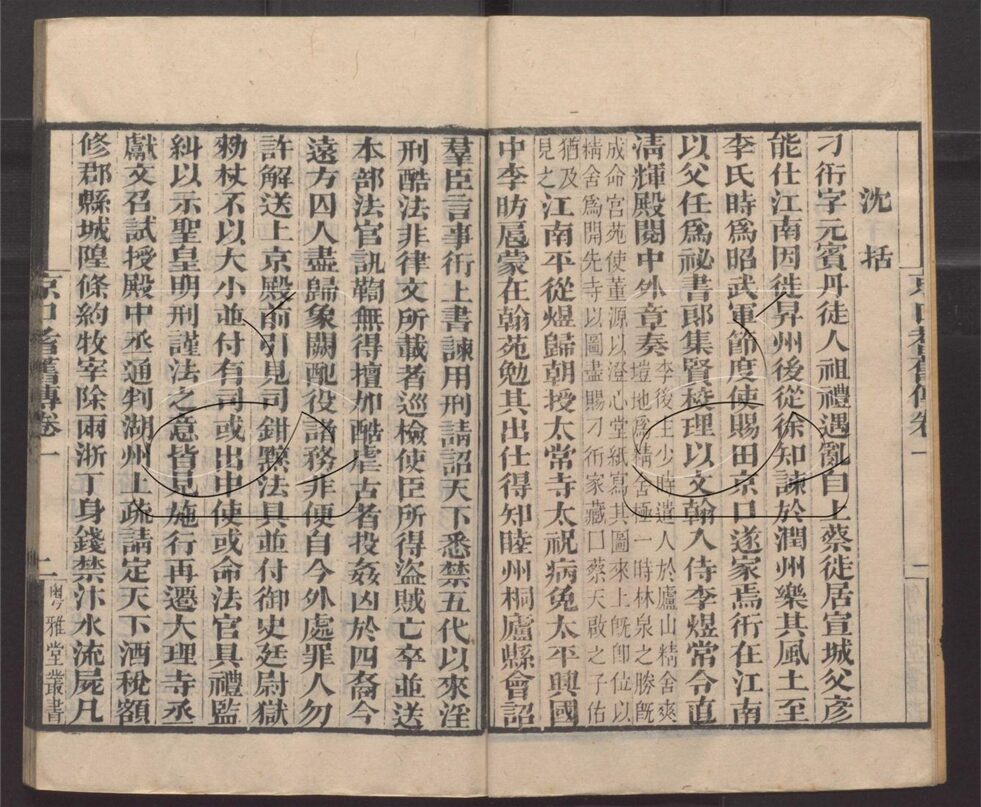 沈括
刁衎字元賓丹徒人祖禮遇亂自上蔡徙居宣城父彥
能仕江南因徙昇州後從徐知諫於潤州樂其風土至
李氏時爲昭武軍節度使賜田京口遂家焉衎在江南
以父任爲祕書郎集賢校理以文翰入侍李煜常令直
清輝殿閱中外章奏李後主少時遣人於廬山精舍爽
塏地爲精舍極一時林泉之勝旣
成命宮苑使董源以澄心堂紙寫其圖來上旣卽位以
精舍爲開先寺以圖盡賜刁衎家藏口蔡天啟之子佑
猶及見之江南平從煜歸朝授太常寺太祝病免太平興國
中李昉扈蒙在翰苑勉其出仕得知睦州桐廬縣會詔
羣臣言事衎上書諫用刑請詔天下悉禁五代以來淫
刑酷法非律文所載者巡檢使臣所得盜賊亡卒並送
本部法官訊鞫無得擅加酷虐古者投姦凶於四裔今
遠方囚人盡歸象闕配役諸務非便自今外處罪人勿
許解送上京殿前引見司鉗黥法具並付御史廷尉獄
勑杖不以大小並付有司或出中使或命法官具禮監
糾以示聖皇明刑謹法之意皆見施行再遷大理寺丞
獻文召試授殿中丞通判湖州上疏請定天下酒稅額
修郡縣城隍條約牧宰除兩浙丁身錢禁汴水流屍凡
京口耆舊傳卷一
二
粵雅堂叢書